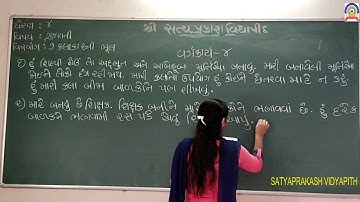 ધોરણ : ૪
શ્રી સત્યપ્રકાશ વિદ્યાપીઠ
વિષય : ગુજરાતી
વિષયાંગ : ૭ કલાકારની ભૂલ
વર્ગકાર્ય - ૪
૧) હું શિલ્પી હોઉં તો અદ્ભુત અને આકર્ષક મૂર્તિઓ બનાવું. મારી બનાવેલી મૂર્તિઓ
જોઈને લોકો દંગ રહી જાય. મારી કલાનો ઉપયોગ હું કોઈને છેતરવા માટે ન કરું.
હું મારી કલા બીજા બાળકોને પણ શીખવું.
૨) મારે બનવું છે શિક્ષક. શિક્ષક બનીને ભણાવવાં છે. હું દરેક
બાળકને ભણવામાં રસ પડે એવું
SATYAPRAKASH VIDYAPITH